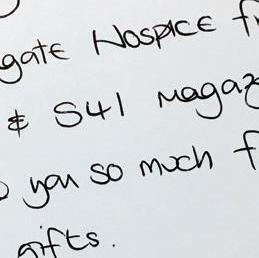 gate Hospice f
& S41 Magaz
you so much f
gifts.